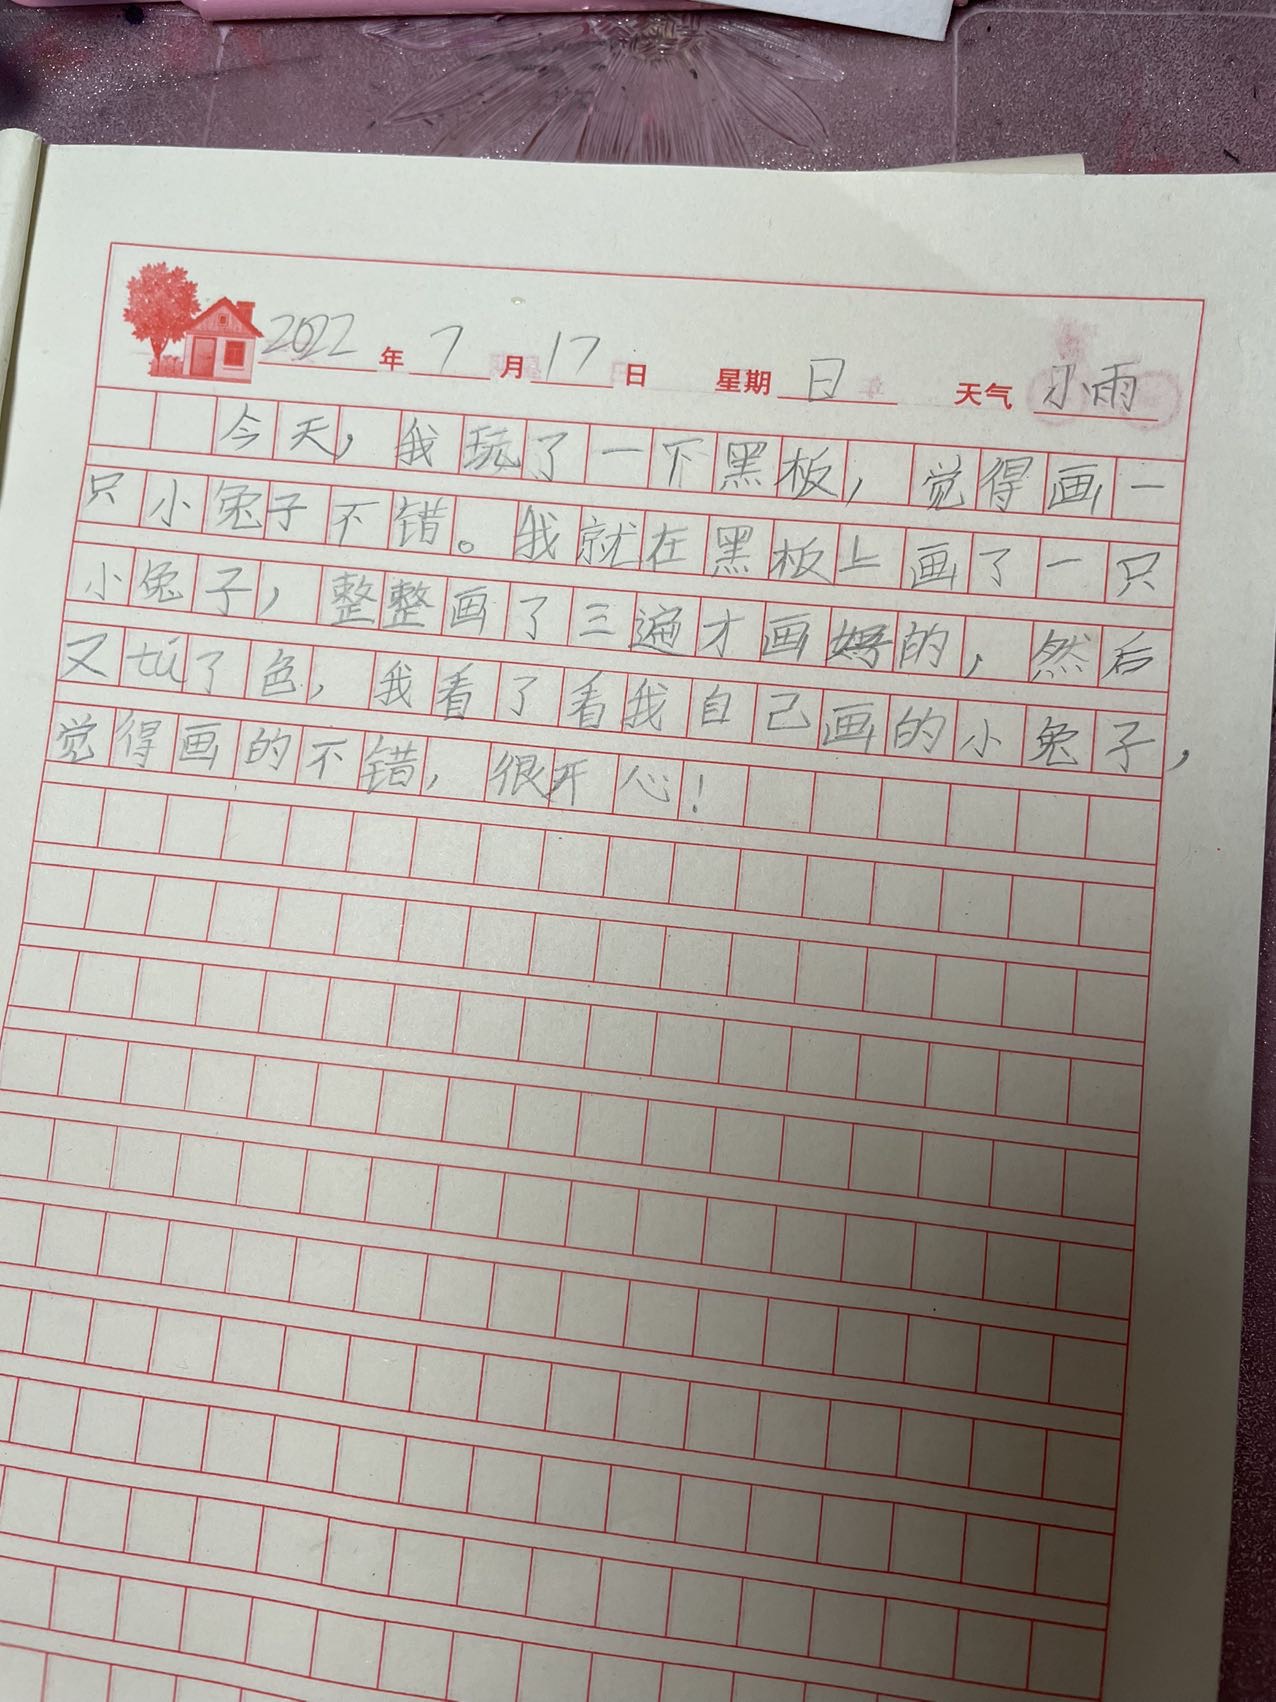 2022年7月17日 星期日 天气小雨
今天，我玩了一下黑板，觉得画一
只小兔子不错。我就在黑板上画了一只
小兔子，整整画了三遍才画好的，然后
又tú了色，我看了看我自己画的小兔子，
觉得画的不错，很开心！